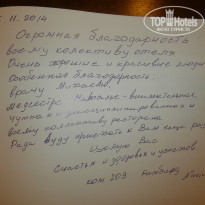 .11.2014
TopHotels
Огромная благодарность
всему коллективу отеля
Очень хорошие и красивые люди
Особенная благодарность:
врачу
медсестре Наталье - внимательные
чуткая
всему коллективу ресторана
Рада буду приехать к Вам еще раз
Целую Вас
Счастья и здоровья и успехов
ком 209